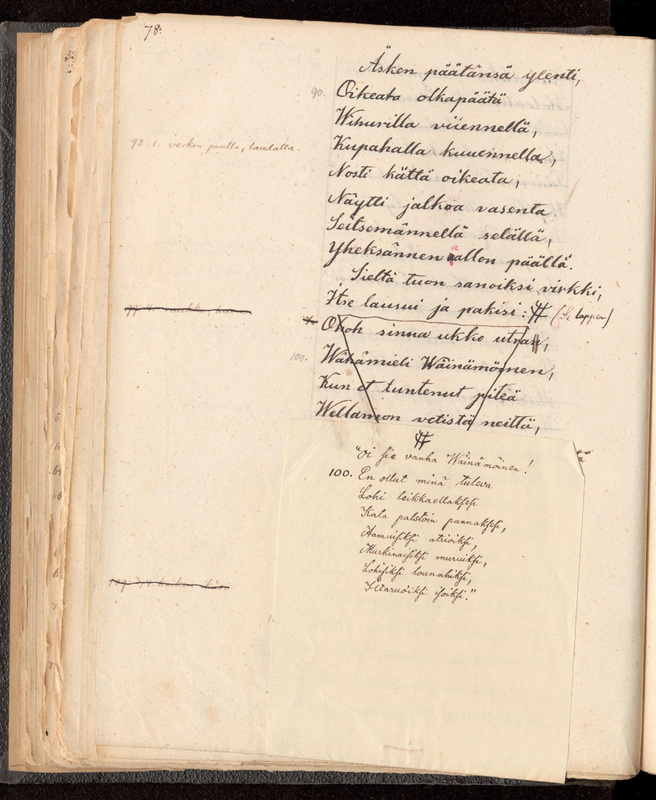 78.
Äsken päätänsä ylenti,
90. Oikeata olkapäätä
Wihurilla viiennellä,
92:1. verkon puulla, laudalla.
Kupahalla kuuennella,
Nosti kättä oikeata,
Näytti jalkoa vasenta.
Seitsemännellä selällä,
Yheksännen aallon päällä.
Sieltä tuon sanoiksi virkki,
Itse lausui ja pakisi: # (Se lappen)
Ohoh sinua ukko utran,
100. Wähämieli Wäinämöinen,
Kun et tuntenut piteä
Wellamon vetistä neittä,
#
"Oi sie vanha Wäinämöinen!
100. En ollut minä tuleva
Lohi leikkaellaksesi
Kala palstoin pannaksesi,
Aamuisiksi atrioiksi,
Murkinaisiksi muruiksi,
Lohisiksi lounahiksi,
Iltaruoiksi isoiksi."